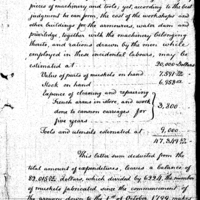 pieces of machinery and tools; yet, according to the best
judgment he can form, the cost of the workshops and
other buildings for the armourers, water dam and
priviledge, together with the machinery belonging
thereto, and rations drawn by the men while
employed in these accidental labours, may be
estimated at 30,000 Dollars
Value of parts of muskets on hand
Stock on hand
Expence of cleaning and repairing
French arms in store, and work
done to common carriages for
five years
3,300
Tools and utensils estimated at 9,000
This latter sum deducted from the
total amount of expenditures, leaves a balance of
which divided by the number
of muskets fabricated since the commencement of
the armoury down to the 1st of October 1799, makes